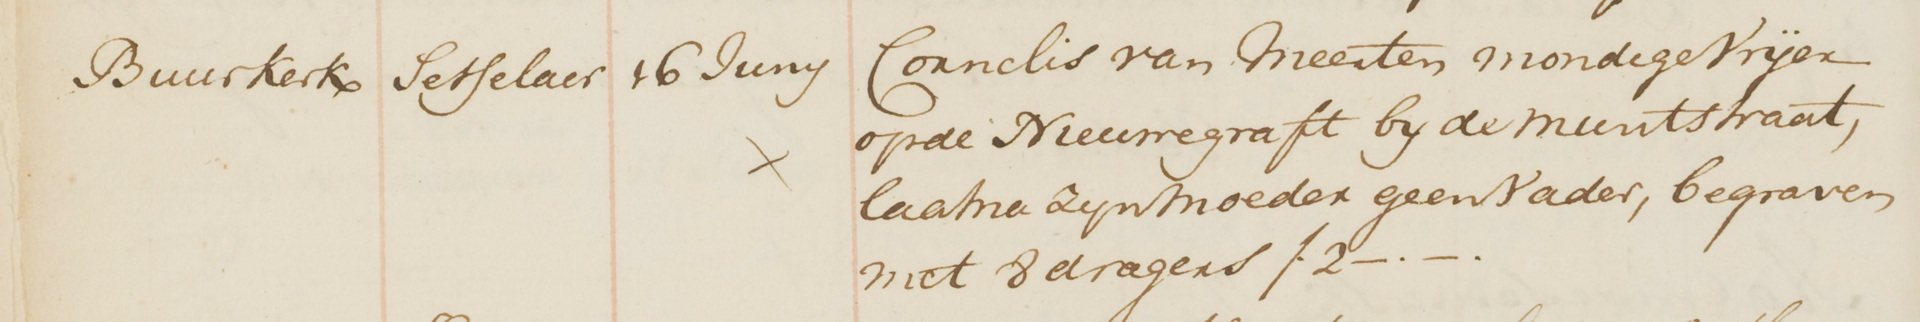 Buurkerk Setselaer 16 Juny Cornelis van Meerten mondige Vrijer
op de Nieuwegraft by de muntstraat,
laat na zyn moeder geen Vader, begraven
met 8 dragers f. 2 –. –.